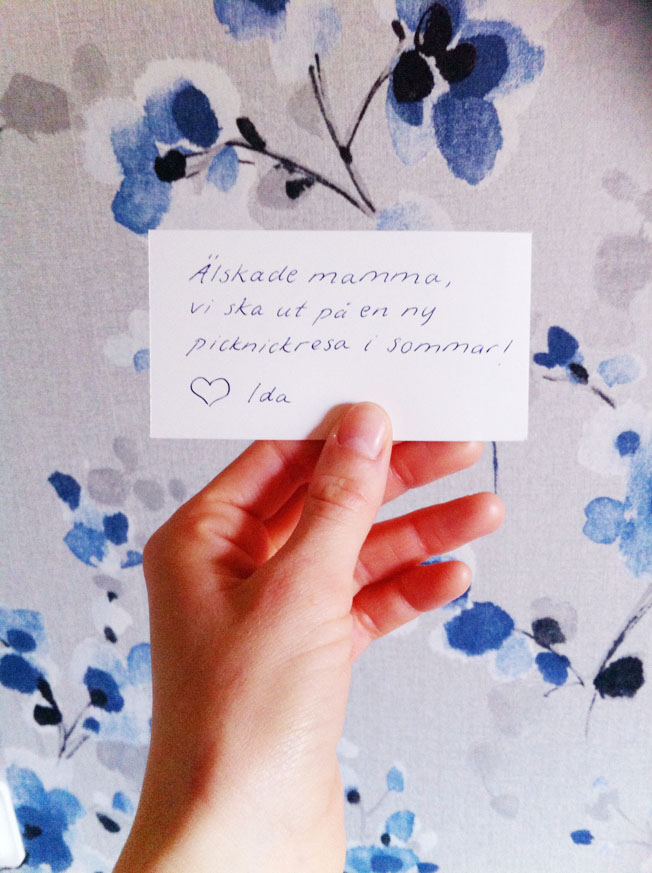 Älskade mamma,
vi ska ut på en ny
picknickresa i sommar!
♡ Ida